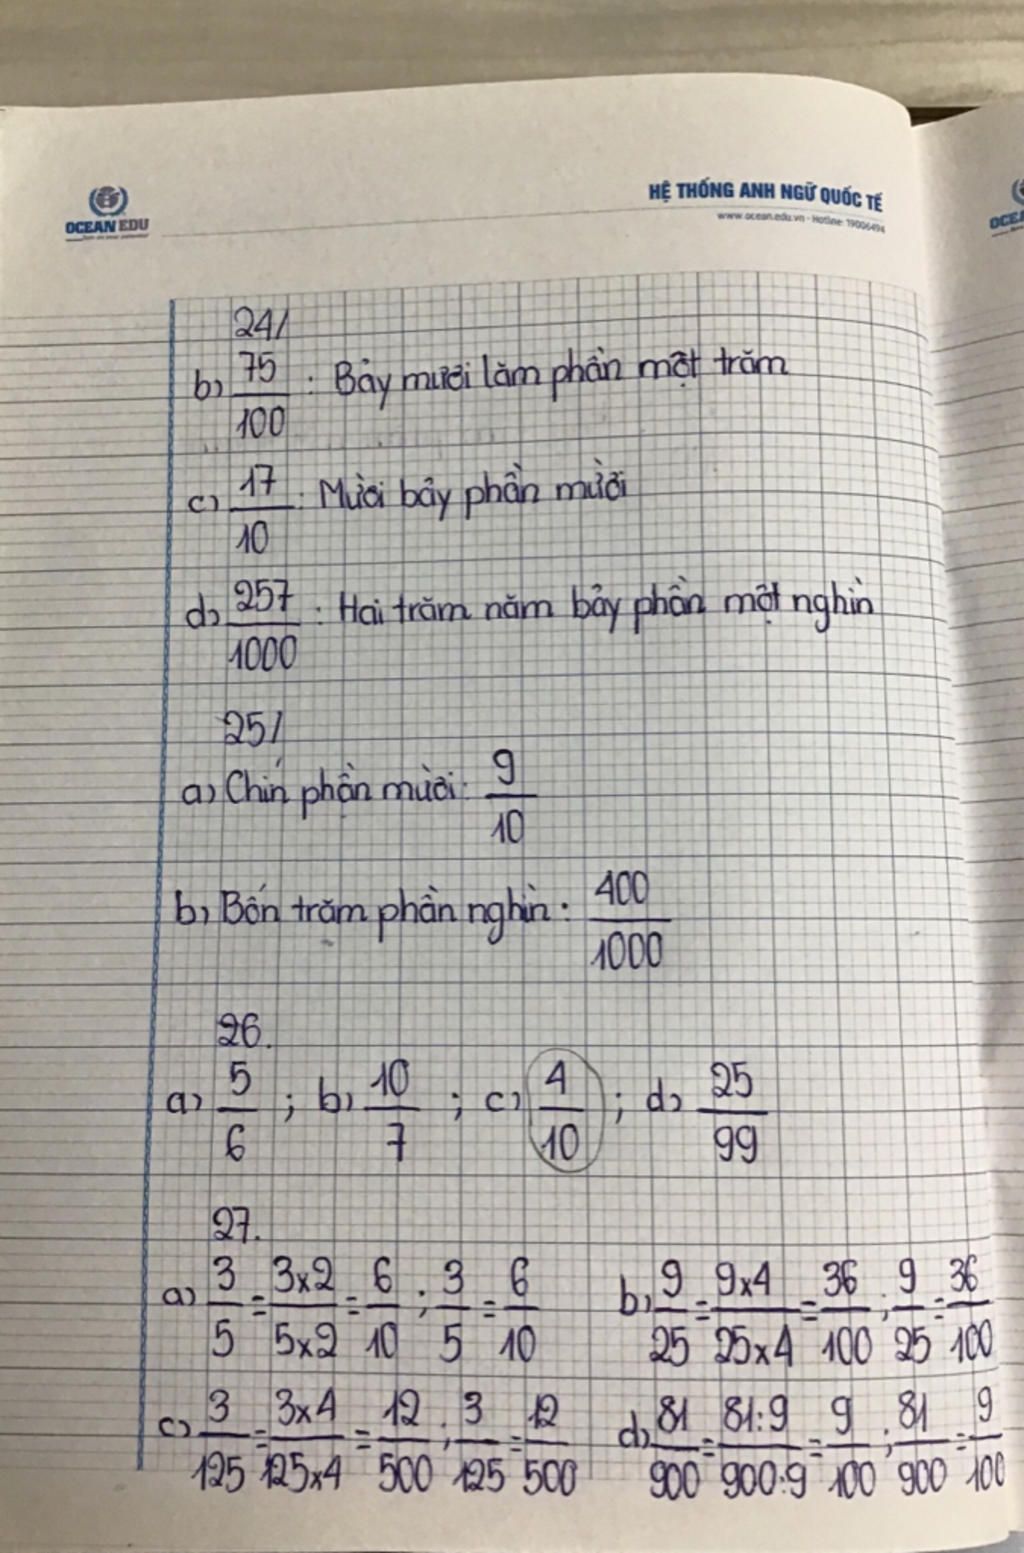 OCEAN EDU
HỆ THỐNG ANH NGỮ QUỐC TẾ
www.ocean.edu.vn - Hotline: 19006494
24/
b) 75/100 : Bảy mươi lăm phần một trăm
c) 17/10 : Mười bảy phần mười
d) 257/1000 : Hai trăm năm bảy phần một nghìn
25/
a) Chín phần mười: 9/10
b) Bốn trăm phần nghìn: 400/1000
26.
a) 5/6 ; b) 10/7 ; c) 4/10 ; d) 25/99
27.
a) 3/5 = 3x2/5x2 = 6/10 ; 3/5 = 6/10 b) 9/25 = 9x4/25x4 = 36/100 ; 9/25 = 36/100
c) 3/125 = 3x4/125x4 = 12/500 ; 3/125 = 12/500 d) 81/900 = 81:9/900:9 = 9/100 ; 81/900 = 9/100